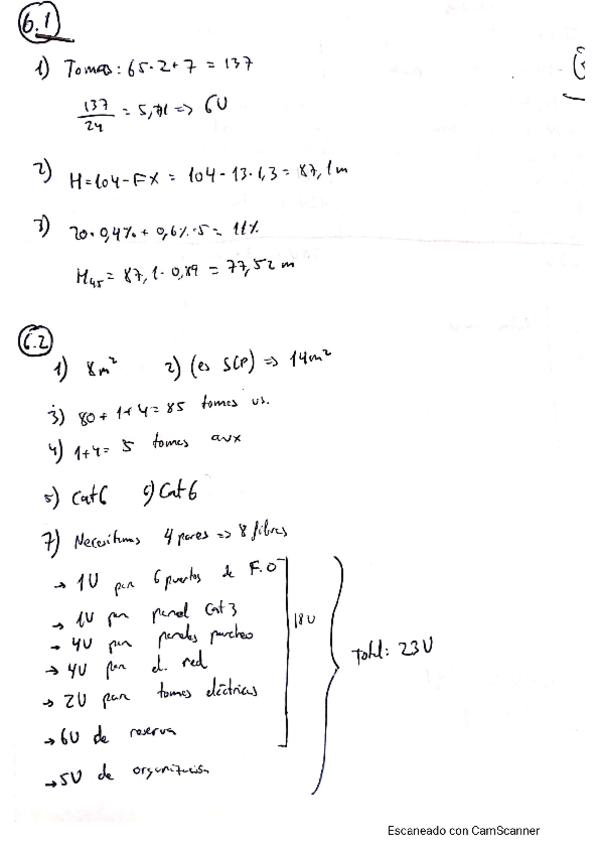 6.1
1) Tomas: 65·2+7 = 137
137/24 = 5,71 => 6U
2) H=104-FX = 104-13·1,3 = 87,1m
3) 20·0,4%+0,6%·5= 11%
H45 = 87,1·0,89 = 77,52 m
6.2
1) 8m² 2) (es SCP) => 14m²
3) 80+1+4=85 tomas us.
4) 1+4= 5 tomas aux
5) Cat6 6) Cat6
7) Necesitamos 4 pares => 8 fibras
→ 1U para 6 puertos de F.O
→ 1U para panel Cat3
→ 4U para paneles parcheo
→ 4U para el. red
→ 2U para tomas eléctricas
→ 6U de reserva
18U
→ 5U de organización
Total: 23U
Escaneado con CamScanner